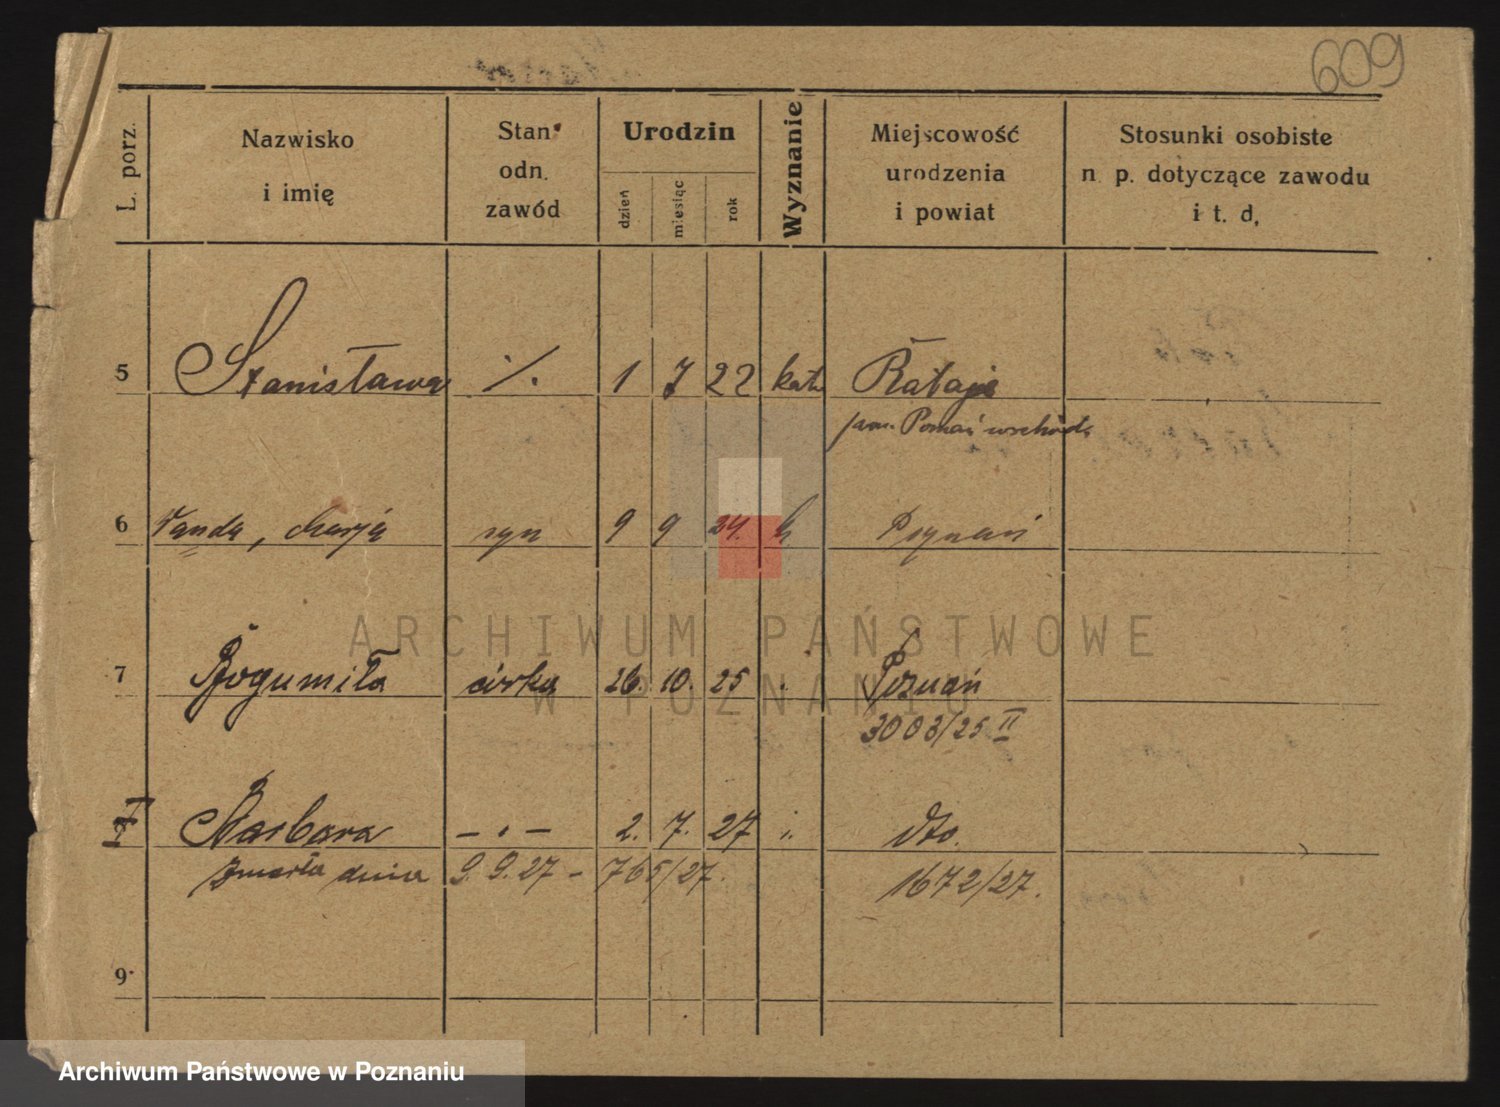 609
L. porz.
Nazwisko
i imię
Stan.
odn.
zawód
Urodzin
dzień
miesiąc
rok
Wyznanie
Miejscowość
urodzenia
i powiat
Stosunki osobiste
n p. dotyczące zawodu
i t. d,
5 Stanisława ./. 1 7 22 kat. Rataje
pow. Poznań wschód.
6 Wanda, Marja syn 9 9 24. Poznań
7 Bogumiła córka 26. 10. 25 Poznań
3003/25 II
Barbara - . - 2. 7. 27 dto.
Zmarła dnia 9. 9. 27 - 765/27. 1672/27.
9
ARCHIWUM PAŃSTWOWE
W POZNANIU
Archiwum Państwowe w Poznaniu